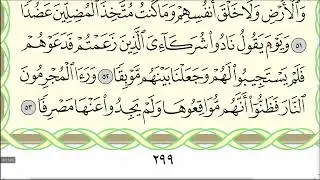 وَٱلْأَرْضِ وَلَا خَلْقَ أَنفُسِهِمْ وَمَا كُنتُ مُتَّخِذَ ٱلْمُضِلِّينَ عَضُدًا
٥١ وَيَوْمَ يَقُولُ نَادُوا۟ شُرَكَآءِىَ ٱلَّذِينَ زَعَمْتُمْ فَدَعَوْهُمْ
فَلَمْ يَسْتَجِيبُوا۟ لَهُمْ وَجَعَلْنَا بَيْنَهُم مَّوْبِقًا ٥٢ وَرَءَا ٱلْمُجْرِمُونَ
ٱلنَّارَ فَظَنُّوٓا۟ أَنَّهُم مُّوَاقِعُوهَا وَلَمْ يَجِدُوا۟ عَنْهَا مَصْرِفًا ٥٣
٢٩٩